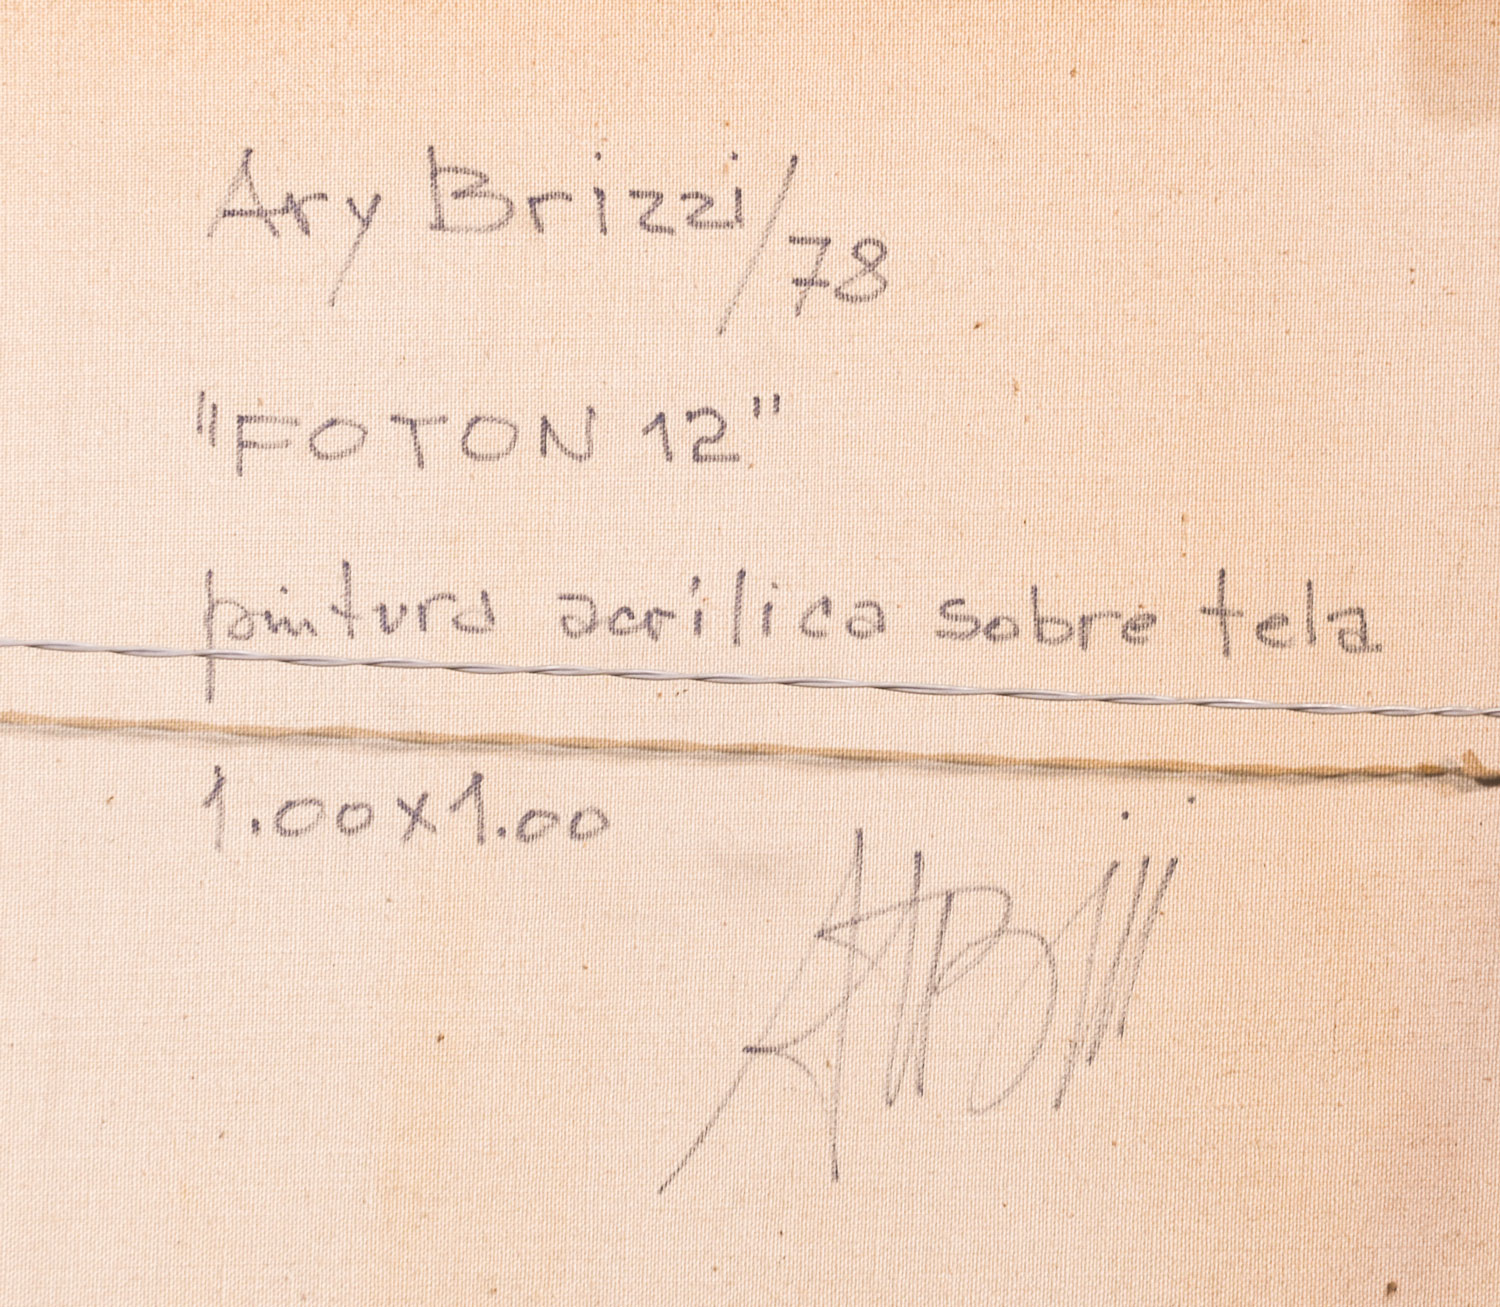 Ary Brizzi/78
"FOTON 12"
pintura acrílica sobre tela
1.00x1.00